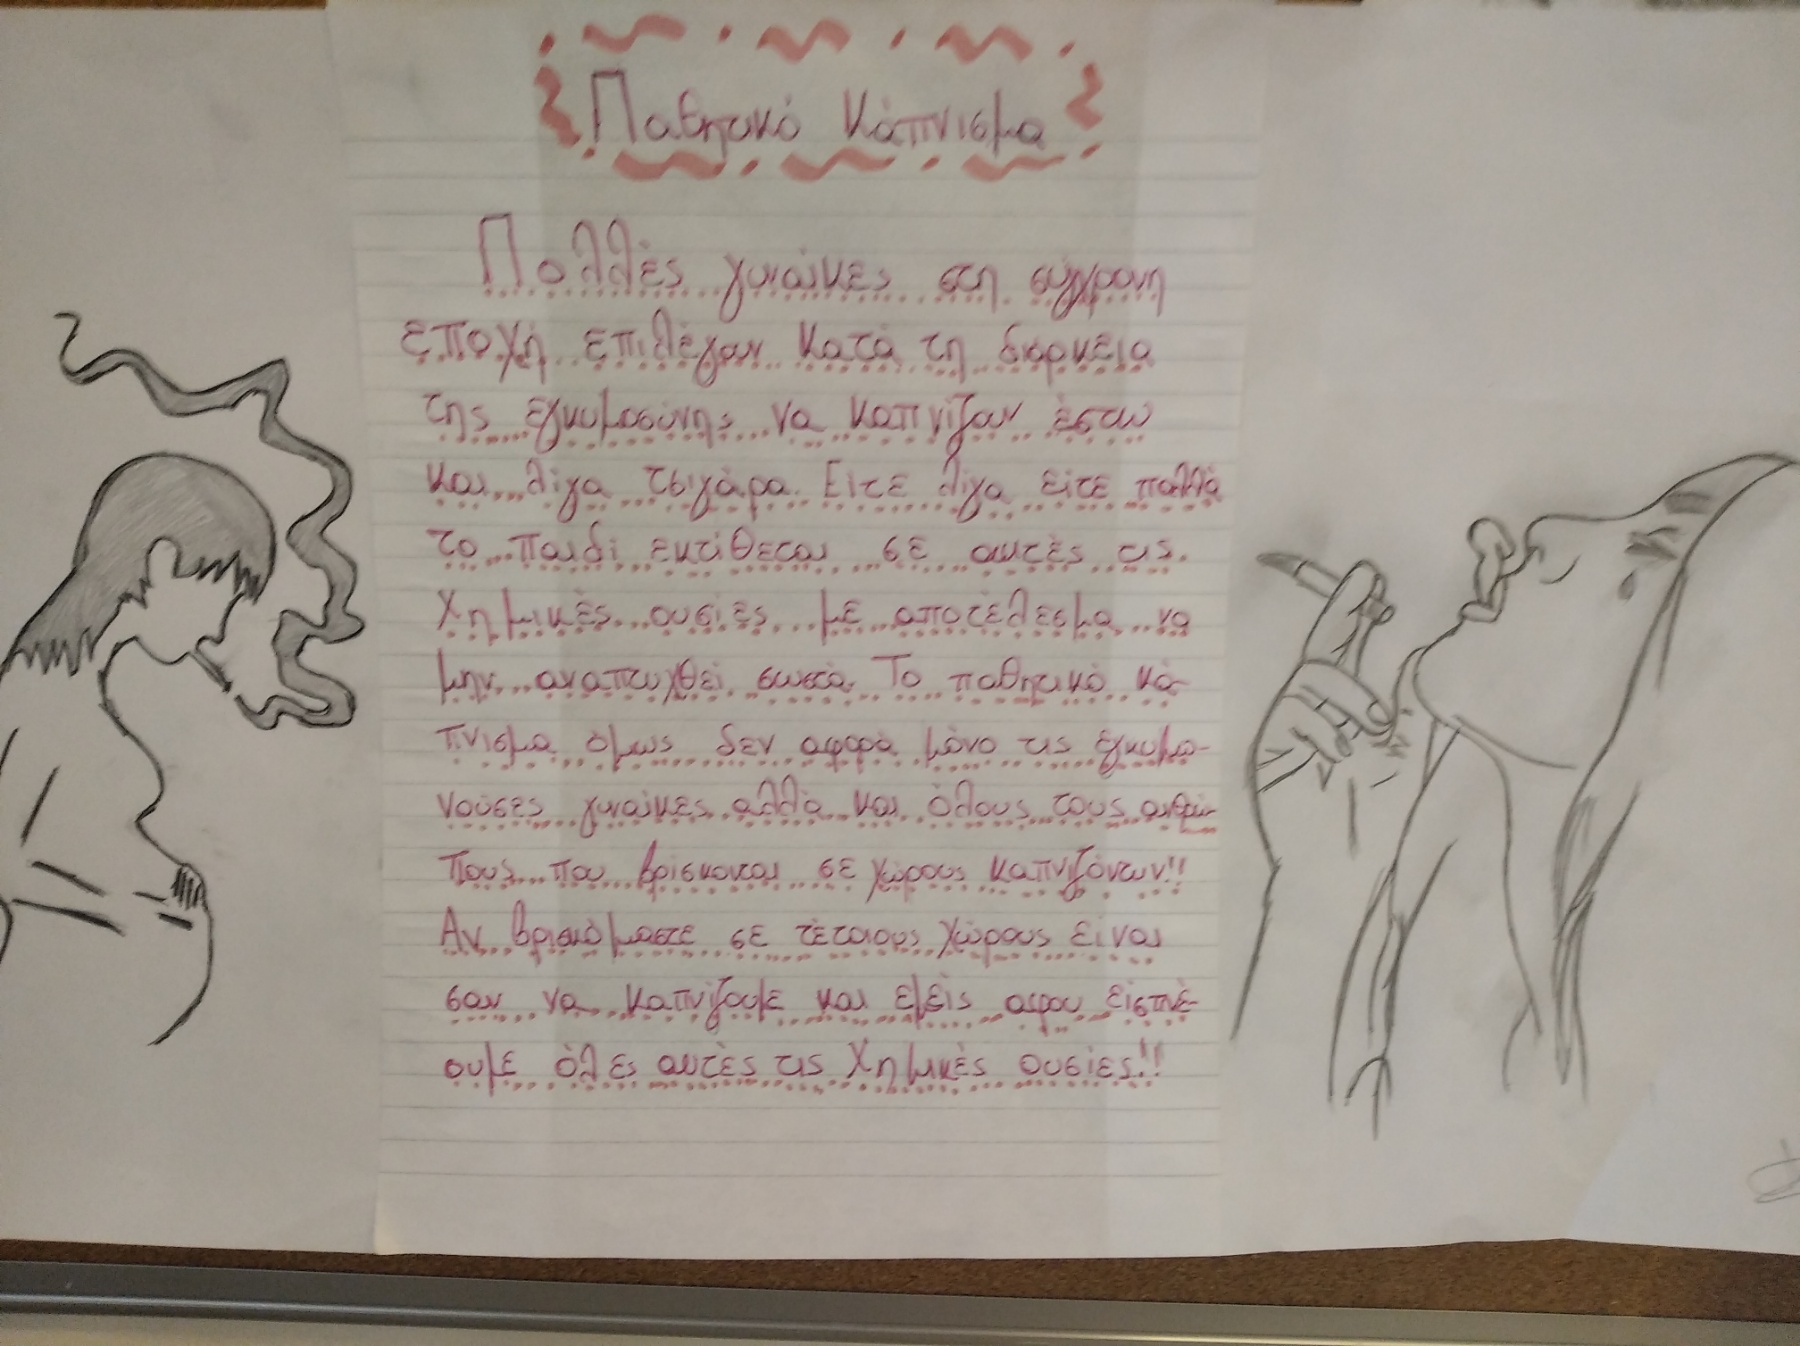 Παθητικό Κάπνισμα
Πολλές γυναίκες στη σύγχρονη
εποχή επιλέγουν κατά τη διάρκεια
της εγκυμοσύνης να καπνίζουν έστω
και λίγα τσιγάρα. Είτε λίγα είτε πολλά
το παιδί εκτίθεται σε αυτές τις
χημικές ουσίες με αποτέλεσμα να
μην αναπτυχθεί σωστά. Το παθητικό κά-
πνισμα όμως δεν αφορά μόνο τις έγκυμο-
νούσες γυναίκες αλλά και όλους τους ανθρώ-
πους που βρίσκονται σε χώρους καπνιζόντων!!
Αν βρισκόμαστε σε τέτοιους χώρους είναι
σαν να καπνίζουμε και εμείς αφου εισπνέ-
ουμε όλες αυτές τις χημικές ουσίες!!